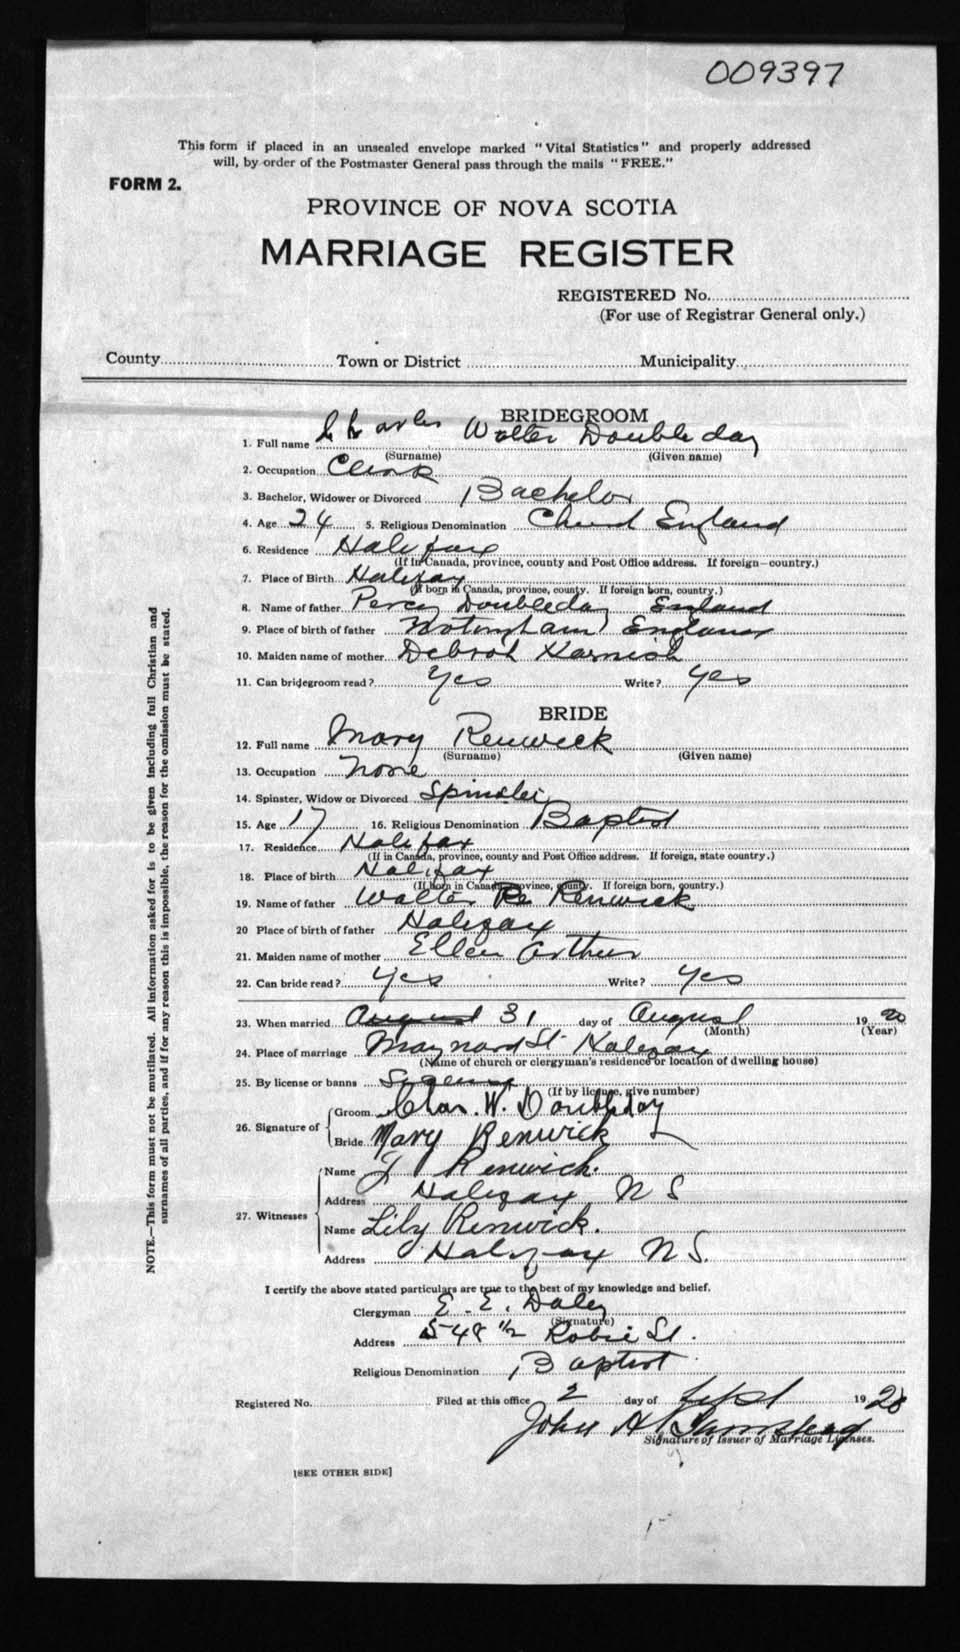 009397
This form if placed in an unsealed envelope marked "Vital Statistics" and properly addressed
will, by order of the Postmaster General pass through the mails "FREE."
FORM 2.
PROVINCE OF NOVA SCOTIA
MARRIAGE REGISTER
REGISTERED No.
(For use of Registrar General only.)
County Town or District Municipality
BRIDEGROOM
1. Full name Charles Walter Doubleday
(Surname) (Given name)
2. Occupation Clerk
3. Bachelor, Widower or Divorced Bachelor
4. Age 24 5. Religious Denomination England
6. Residence Halifax
(If in Canada, province, county and Post Office address. If foreign—country.)
7. Place of Birth Halifax
(If born in Canada, province, county. If foreign born, country.)
8. Name of father Percy Doubleday England
9. Place of birth of father Notingham England
10. Maiden name of mother Debrah Harnish
11. Can bridegroom read? Yes Write? Yes
BRIDE
12. Full name Mary Renwick
(Surname) (Given name)
13. Occupation None
14. Spinster, Widow or Divorced Spinster
15. Age 17 16. Religious Denomination Baptist
17. Residence Halifax
(If in Canada, province, county and Post Office address. If foreign, state country.)
18. Place of birth Halifax
(If born in Canada, province, county. If foreign born, country.)
19. Name of father Walter Re Renwick
20 Place of birth of father Halifax
21. Maiden name of mother Ellen Arthur
22. Can bride read? Yes Write? Yes
23. When married August 31 day of August 1920
(Month) (Year)
24. Place of marriage Maynard St. Halifax
(Name of church or clergyman's residence or location of dwelling house)
25. By license or banns
(If by license, give number)
26. Signature of
Groom Chas. W. Doubleday
Bride Mary Renwick
27. Witnesses
Name J Renwick.
Address Halifax N S
Name Lily Renwick.
Address Halifax N S.
I certify the above stated particulars are true to the best of my knowledge and belief.
Clergyman E. E. Daley
(Signature)
Address 548 1/2 Robie St.
Religious Denomination Baptist
Registered No. Filed at this office 2 day of Sept 1920
John A
Signature of Issuer of Marriage Licenses.
[SEE OTHER SIDE]
NOTE.—This form must not be mutilated. All information asked for is to be given including full Christian and
surnames of all parties, and if for any reason this is impossible, the reason for the omission must be stated.